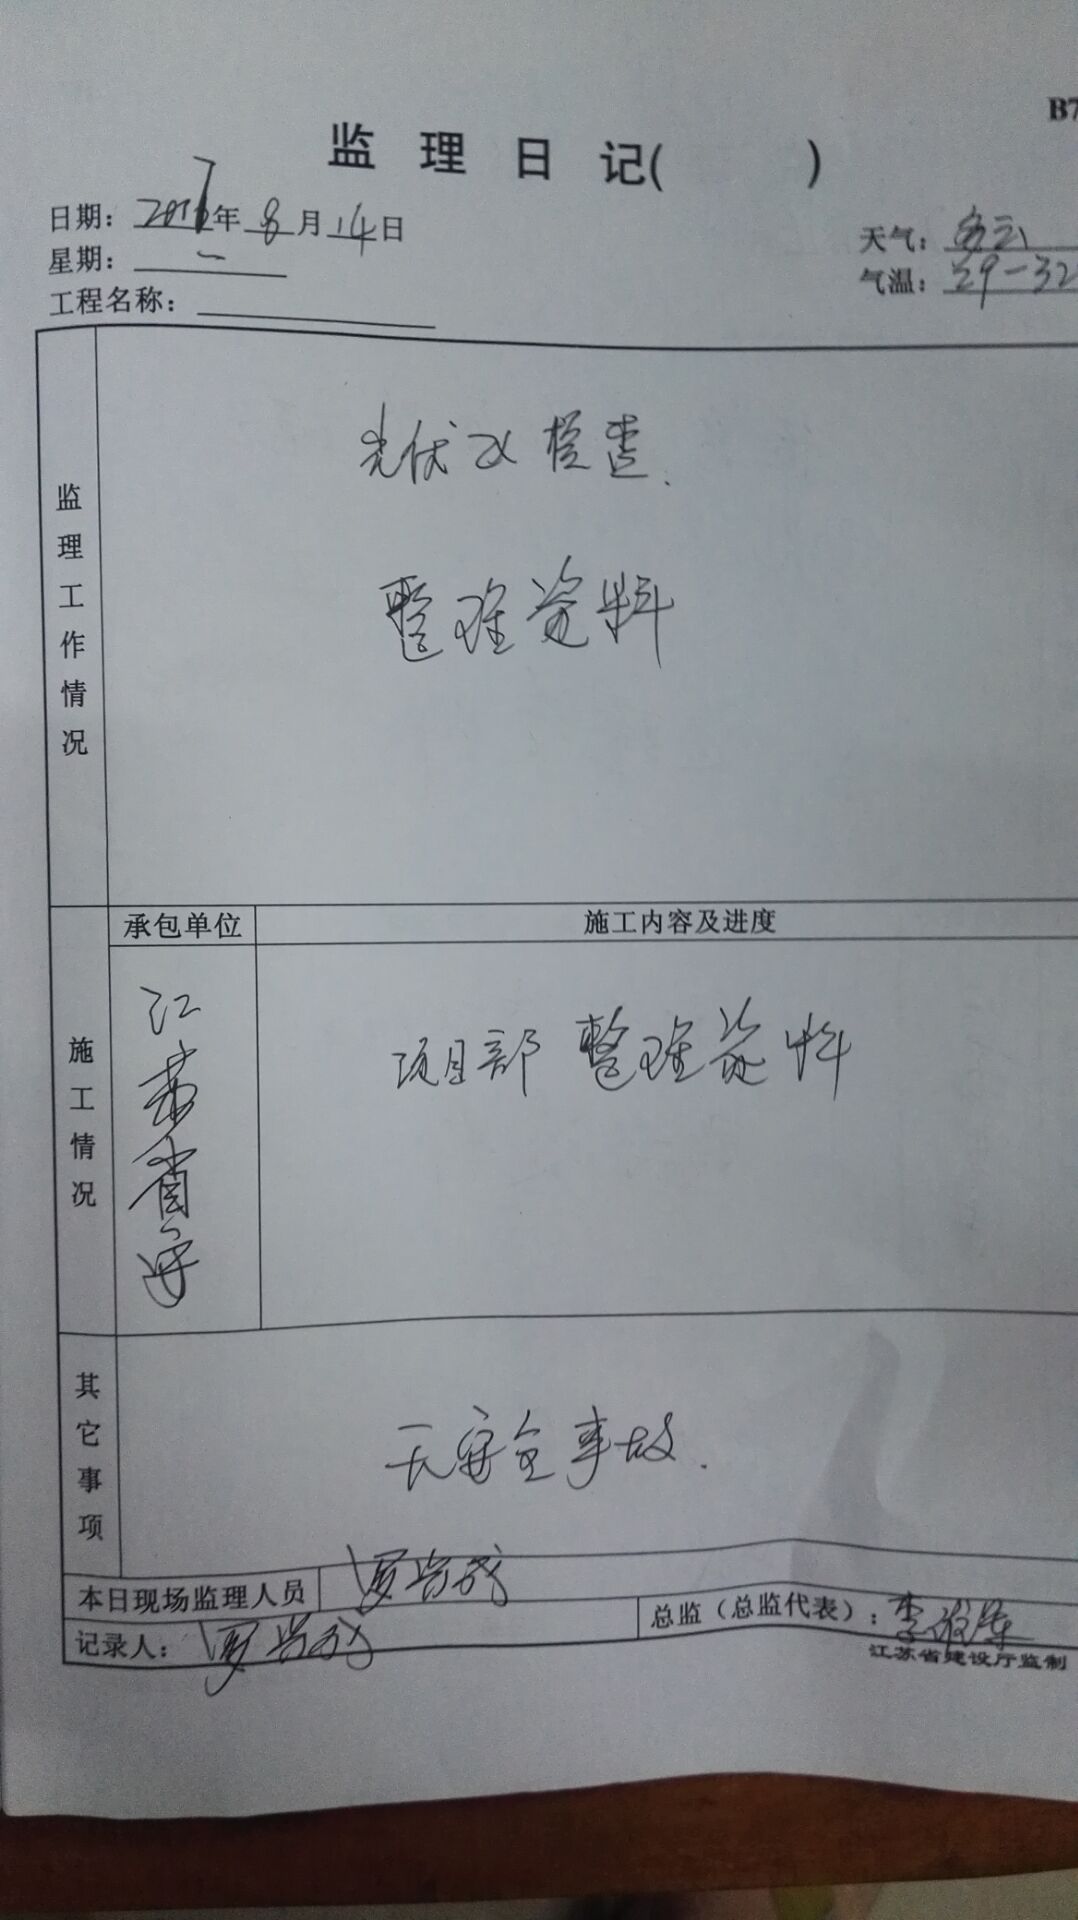 B7
监理日记( )
日期: 2017年8月14日
天气: 多云
星期: 一
气温: 29-32
工程名称:
监理工作情况
光伏区检查.
整理资料
承包单位
施工内容及进度
施工情况
江苏省
项目部整理资料
其它事项
无安全事故.
本日现场监理人员
记录人:
总监(总监代表): 李
江苏省建设厅监制